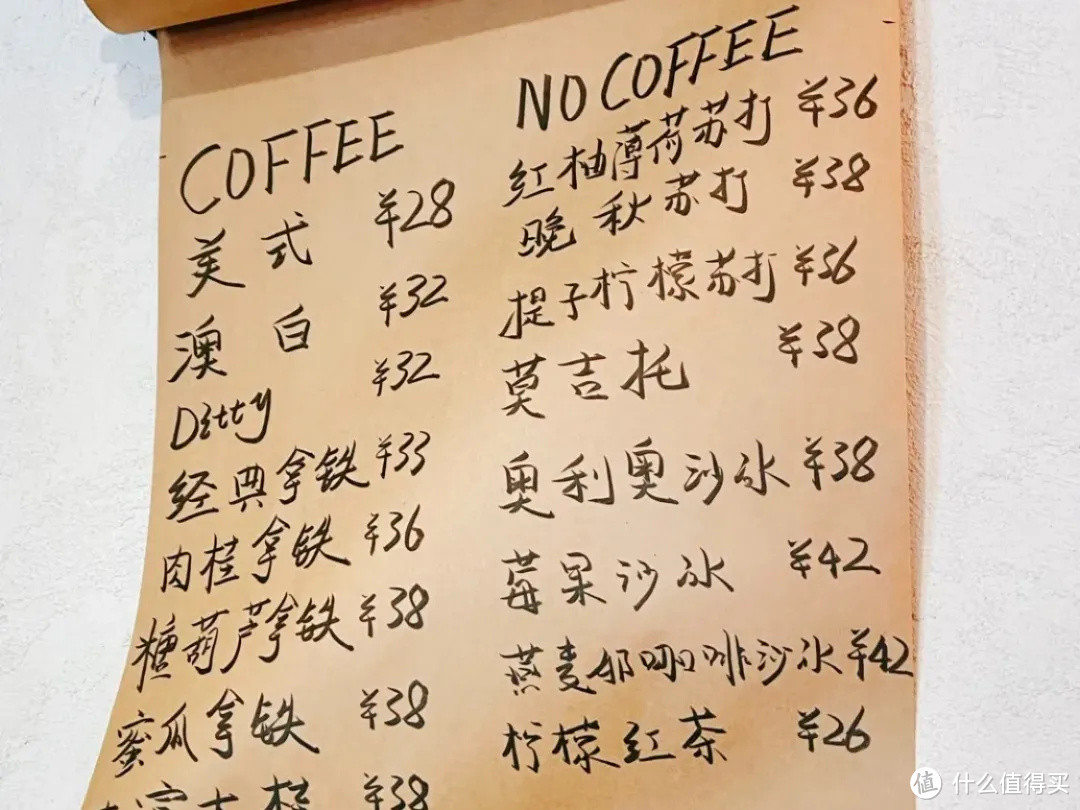 COFFEE
美式 ¥28
澳白 ¥32
Ditty ¥32
经典拿铁 ¥33
肉桂拿铁 ¥36
糖葫芦拿铁 ¥38
蜜瓜拿铁 ¥38
¥38
NO COFFEE
红柚薄荷苏打 ¥36
晚秋苏打 ¥38
提子柠檬苏打 ¥36
莫吉托 ¥38
奥利奥沙冰 ¥38
莓果沙冰 ¥42
燕麦郁咖啡沙冰 ¥42
柠檬红茶 ¥26
值 什么值得买